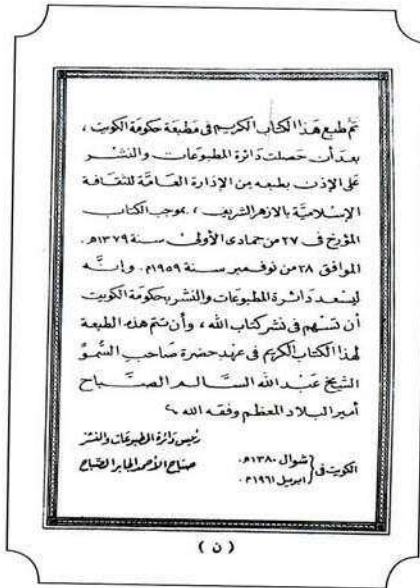 تم طبع هذا الكتاب الكريم فى مطبعة حكومة الكويت ،
بعد أن حصلت دائرة المطبوعات والنشر
على الإذن بطبعه من الإدارة العامة للثقافة
الإسلامية بالازهر الشريف ، بموجب الكتاب
المؤرخ فى ٢٧ من جمادى الأولى سنة ١٣٧٩هـ.
الموافق ٢٨ من نوفمبر سنة ١٩٥٩م. وإنه
ليسعد دائرة المطبوعات والنشر بحكومة الكويت
أن تسهم فى نشر كتاب الله ، وأن تتم هذه الطبعة
لهذا الكتاب الكريم فى عهد حضرة صاحب السمو
الشيخ عبد الله السالم الصباح
أمير البلاد المعظم وفقه الله
رئيس دائرة المطبوعات والنشر
صباح الأحمد الجابر الصباح
الكويت فى { شوال ١٣٨٠هـ.
ابريل ١٩٦١م.
( ن )